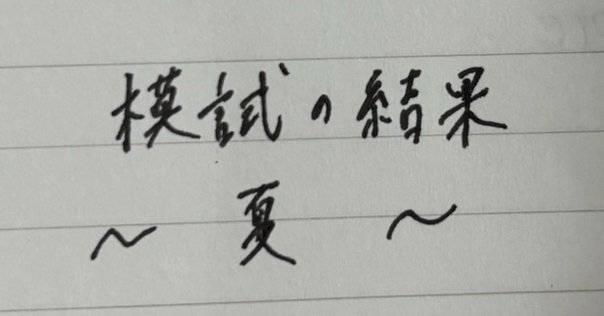 模試の結果
〜 夏 〜